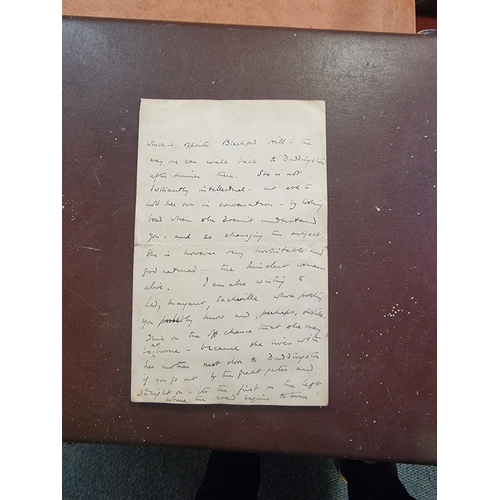 which is opposite Blackford Hill - the
way we can walk back to Duddingston
after dinner there. She is not
brilliantly intellectual - but able to
hold her own in conversation - by looking
bored when she doesn't understand
you - and so changing the subject.
She is however very hospitable and
good natured - the kindest woman
alive. I am also writing to
Lady Margaret Sackville whose poetry
you probably know and, perhaps, dislike.
This on the off chance that she may
be at home - because she lives with
her mother next door to Duddingston
if you go out by the great gates and
straight on - its the first on the left
where the road begins to turn